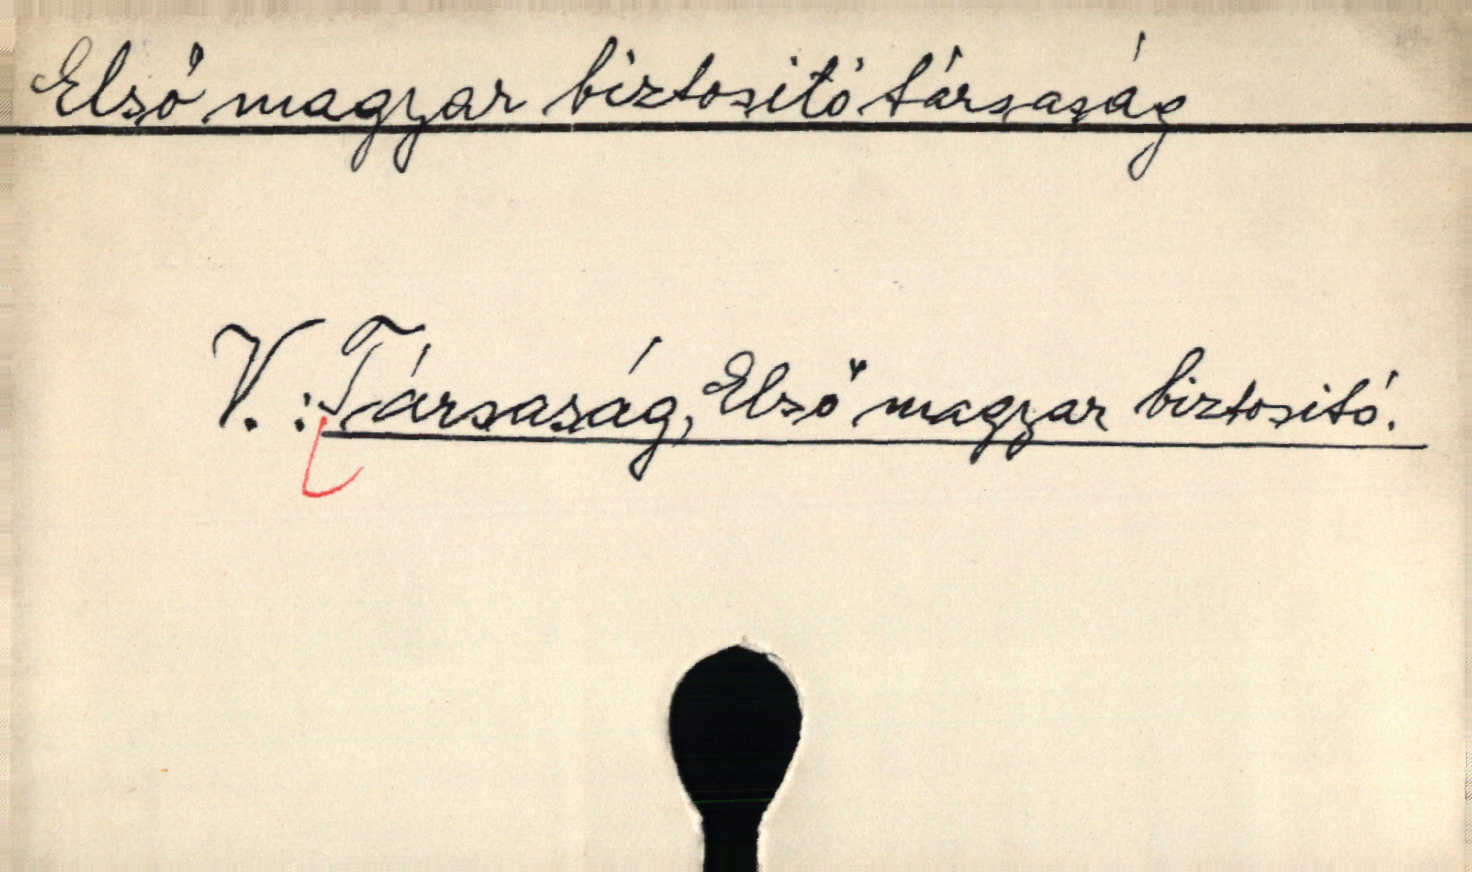 Első magyar biztositó társaság
V.: Társaság, Első magyar biztositó.